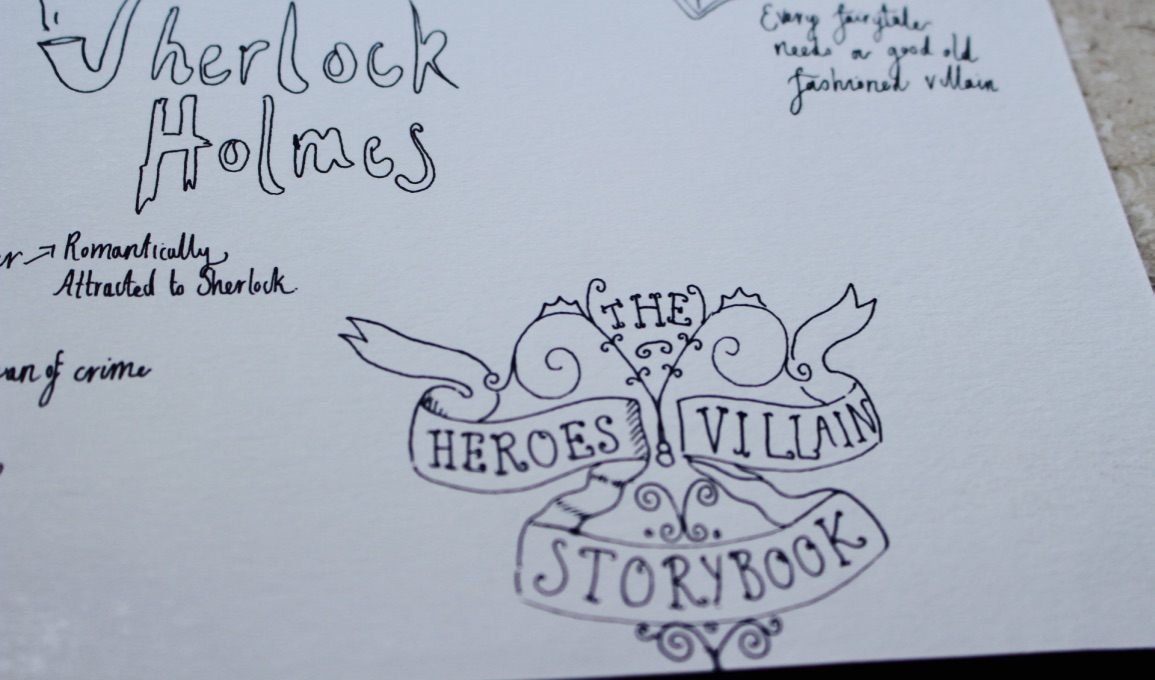 Sherlock
Holmes
Every fairytale
needs a good old
fashioned villain
→ Romantically
Attracted to Sherlock
of crime
THE
HEROES & VILLAIN
STORYBOOK